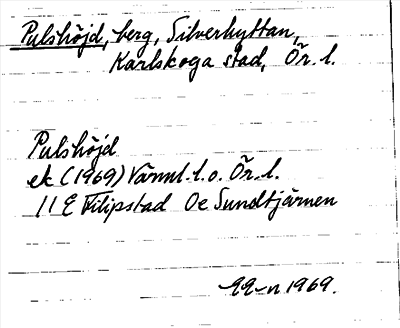 Pulshöjd, berg, Silverhyttan,
Karlskoga stad, Ör. l.
Pulshöjd
ek (1969) Värml. l. o. Ör. l.
11 E Filipstad Oe Sundtjärnen
1969.